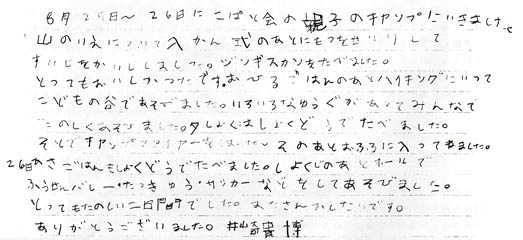 8月25日～26日にこばと会の親子のキャンプにいきました。
山のいえについて入かん式のあとにもつをせいりして
すいじをかいししました。ジンギスカンをたべました。
とってもおいしかったです。おひるごはんのあとハイキングにいって
こどもの谷であそびました。いろいろなゆうぐがあってみんなで
たのしくあそびました。夕しょくはしょくどうでたべました。
そとでキャンプファイアーをしました。そのあとおふろに入ってねました。
26日あさごはんもしょくどうでたべました。しょくじのあとホールで
ふうせんバレー・たっきゅう・サッカーなどをしてあそびました。
とってもたのしい二日間でした。またさんかしたいです。
ありがとうございました。 博